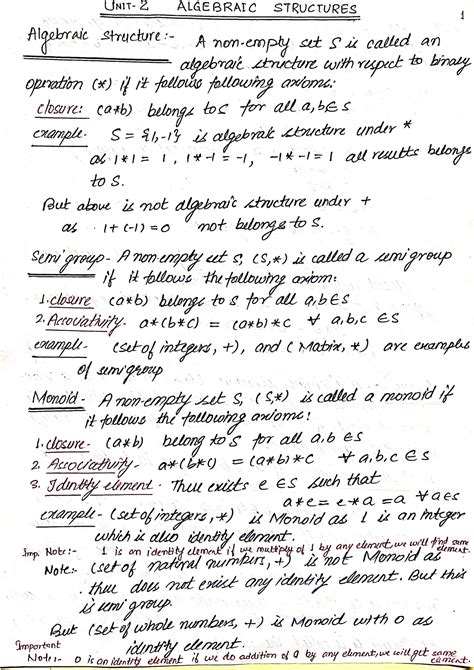 UNIT-2 ALGEBRAIC STRUCTURES
1
Algebraic structure:- A non-empty set S is called an
algebraic structure with respect to binary
operation (*) if it follows following axioms:
closure: (a*b) belongs to S for all a,b∈S
example- S = {1,-1} is algebraic structure under *
as 1*1 = 1, 1*-1 = -1, -1*-1 = 1 all results belongs
to S.
But above is not algebraic structure under +
as 1+(-1) = 0 not belongs to S.
Semi group- A non empty set S, (S,*) is called a semigroup
if it follows the following axiom:
1. closure (a*b) belongs to S for all a,b∈S
2. Associativity- a*(b*c) = (a*b)*c ∀ a,b,c ∈S
example- (set of integers, +), and (Matrix, *) are examples
of semigroup
Monoid- A non-empty set S, (S,*) is called a monoid if
it follows the following axioms:
1. closure- (a*b) belong to S for all a,b ∈S
2. Associativity- a*(b*c) = (a*b)*c ∀ a,b,c ∈S
3. Identity element- There exists e ∈S such that
a*e = e*a = a ∀ a∈S
example- (set of integers,*) is Monoid as 1 is an Integer
which is also identity element.
Imp. Note:- 1 is an identity element if we multiply of 1 by any element we will find same
element.
Note:- (set of natural numbers, +) is not Monoid as
there does not exist any identity element. But this
is semi group.
But (set of whole numbers, +) is Monoid with 0 as
identity element.
Important
Note:- 0 is an identity element is we do addition of 0 by any element, we will get same
element.